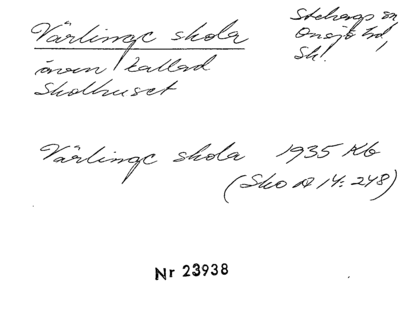 Värlinge skola
även kallad
Skolhuset
Stehags sn,
Onsjö hd,
Sk.
Värlinge skola 1935 Kb
(Sko A 14: 248)
Nr 23938